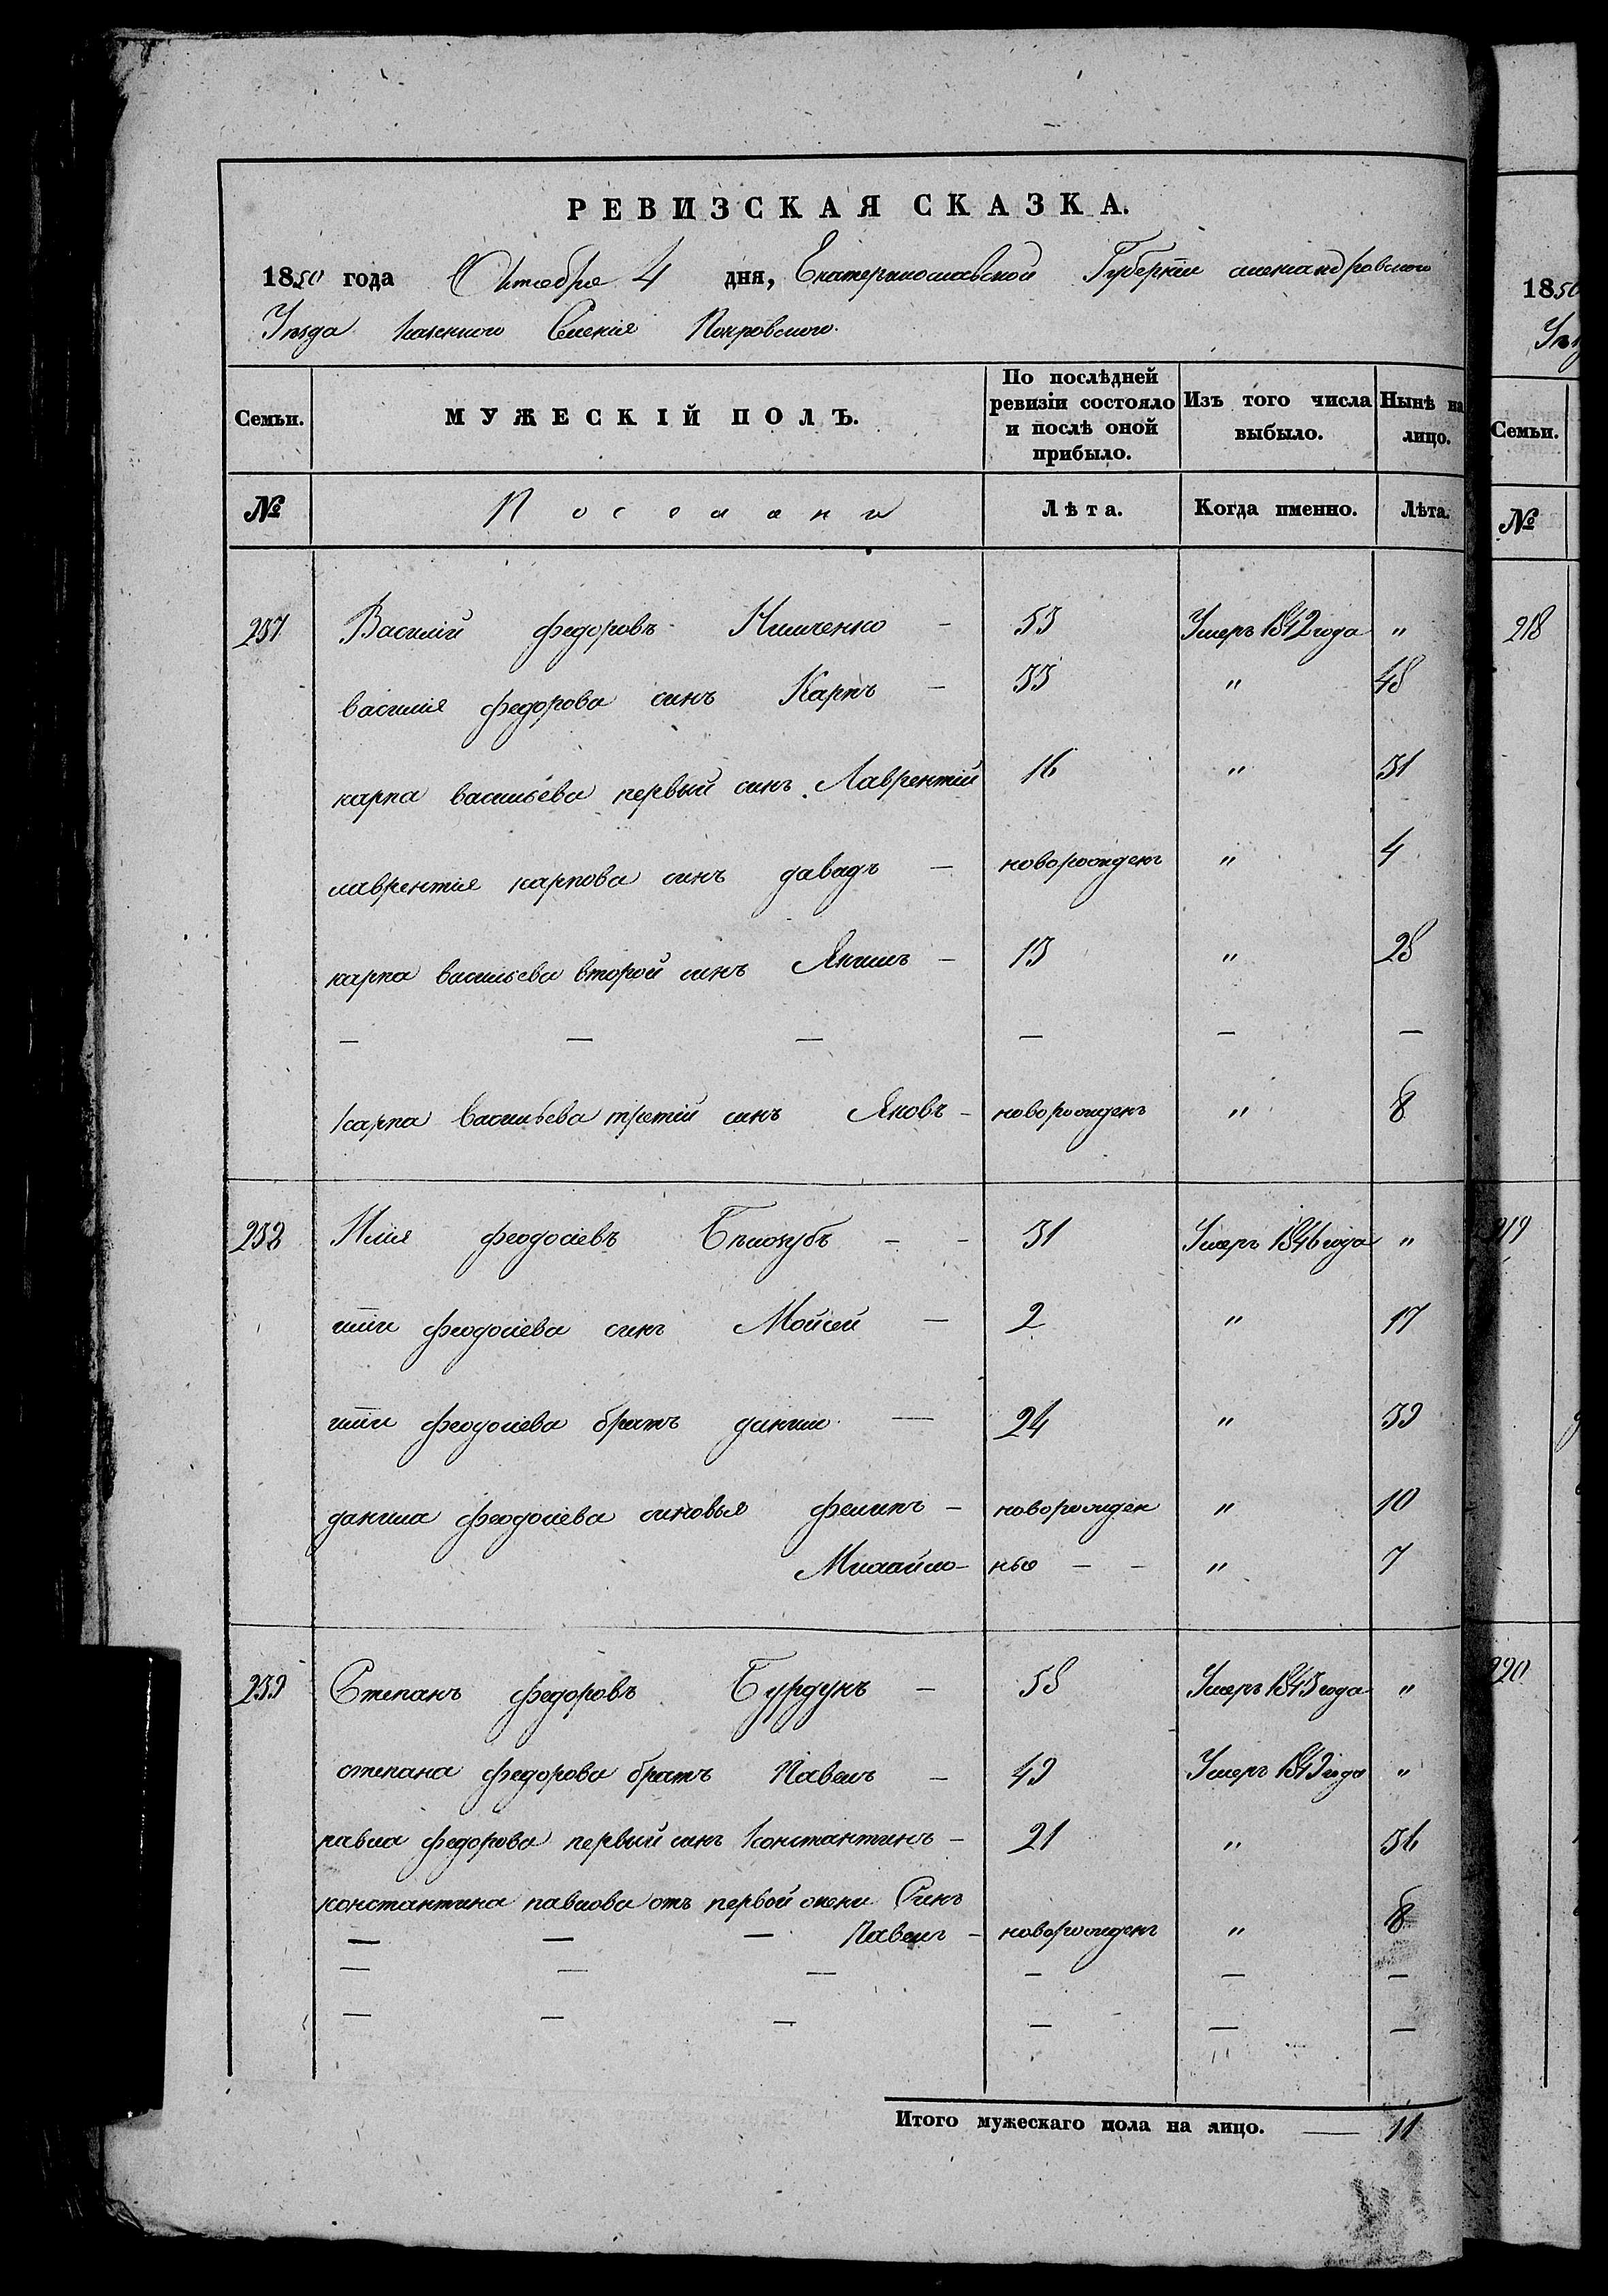 РЕВИЗСКАЯ СКАЗКА.
1850 года Октября 4 дня, Екатеринославской Губернїи александровского
Уѣзда Казенного Селенія Покровского.
Семьи. МУЖЕСКІЙ ПОЛЪ. По послѣдней ревизіи состояло и послѣ оной прибыло. Изъ того числа выбыло. Нынѣ на лицо.
№ Поселяни Лѣта. Когда именно. Лѣта.
237 Василій федоровъ Климченко — 53 Умеръ 1842 года "
василія федорова синъ Карпъ — 33 " 48
карпа васильева первый синъ Лаврентій 16 " 31
лаврентія карпова синъ давидъ — новорожденъ " 4
карпа васильева второй синъ Якимъ — 13 " 28
— — — — — —
карпа васильева третій синъ Яковъ — новорожденъ " 8
238 Илія феодосіевъ Бѣлозубъ — — 31 Умеръ 1846 года "
иліи феодосіева синъ Мойсей — 2 " 17
иліи феодосіева братъ данило — 24 " 39
данила феодосіева синовья филипъ — новорожден " 10
Михайло — ные — — " 7
239 Степанъ федоровъ Бурдунъ — 58 Умеръ 1845 года "
степана федорова братъ Павелъ — 49 Умеръ 1849 года "
павла федорова первый синъ Константинъ — 21 " 36
константина павлова отъ первой жени Синъ
— — — Павелъ — новорожденъ " 8
— — — — — —
— — — — — —
Итого мужескаго пола на лицо. — 11
1850
Семьи.
№
218
219
220